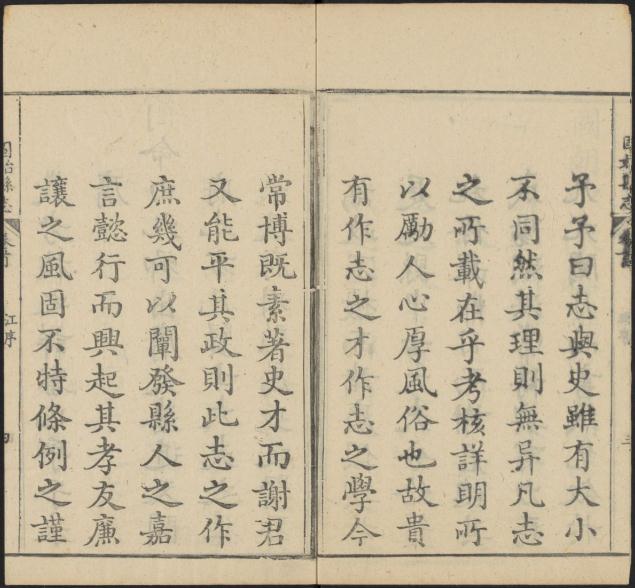 予予曰志與史雖有大小
不同然其理則無异凡志
之所載在乎考核詳明所
以勵人心厚風俗也故貴
有作志之才作志之學今
常博既素著史才而謝君
又能平其政則此志之作
庶幾可以闡發縣人之嘉
言懿行而興起其孝友廉
讓之風固不特條例之謹
固始縣志
江序
四